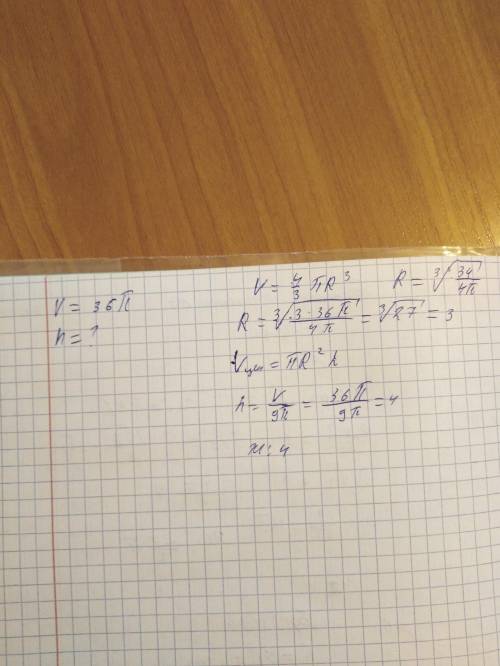 V = 36π
h = ?
V = 4/3 πR³ R = ∛(3V/4π)
R = ∛(3·36π/4π) = ∛27 = 3
Vцил = πR²h
h = V/9π = 36π/9π = 4